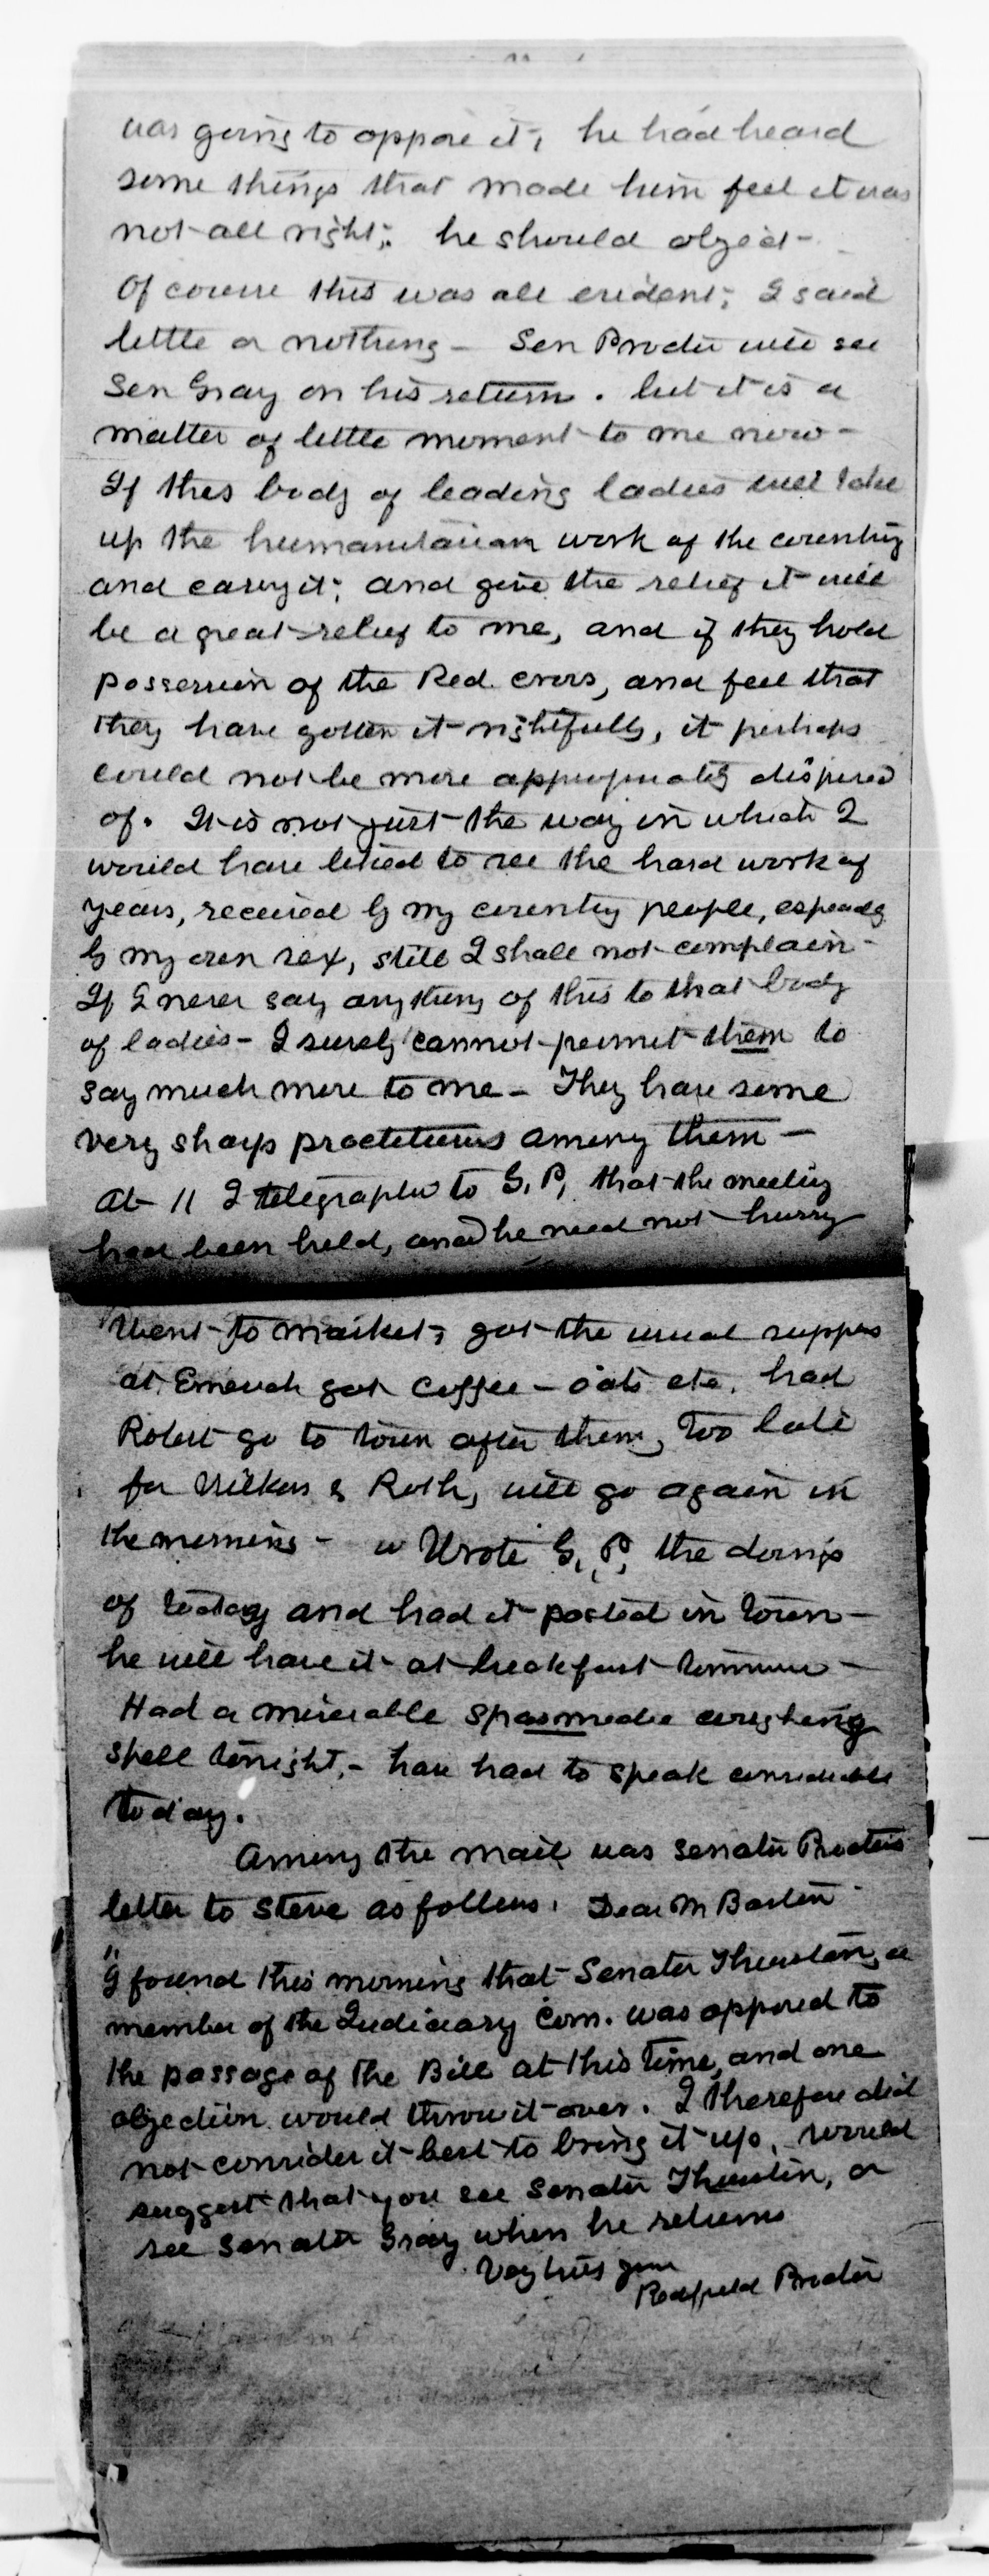 was going to oppose it, he had heard
some things that made him feel it was
not all right; he should object -
Of course this was all evident; I said
little or nothing - Sen Procter will see
Sen Gray on his return. but it is a
matter of little moment to me now -
If this body of leading ladies will take
up the humanitarian work of the country
and carry it; and give the relief it will
be a great relief to me, and if they hold
possession of the Red Cross, and feel that
they have gotten it rightfully, it perhaps
could not be more appropriately disposed
of. It is not just the way in which I
would have liked to see the hard work of
years, received by my country people, especially
by my own sex, still I shall not complain -
If I never say anything of this to that body
of ladies - I surely cannot permit them to
say much more to me - They have some
very sharp practitions among them -
At 11 I telegraphed to G. P. that the meeting
had been held, and he need not hurry
Went to market; got the usual supplies
at got coffee - oats etc. had
Robert go to town after them, too late
for Wilkens & Roth, will go again in
the morning - w Wrote G. P. the doings
of today and had it posted in town -
he will have it at breakfast tomorrow -
Had a miserable spasmodic coughing
spell tonight, - have had to speak considerable
today.
Among the mail was Senator Procters
letter to Steve as follows. Dear Mr Barton
"I found this morning that Senator Thurston, a
member of the Judiciary Com. was opposed to
the passage of the Bill at this time, and one
objection would throw it over. I therefore did
not consider it best to bring it up. Would
suggest that you see Senator Thurston, or
see Senator Gray when he returns
Very truly yours
Redfield Procter